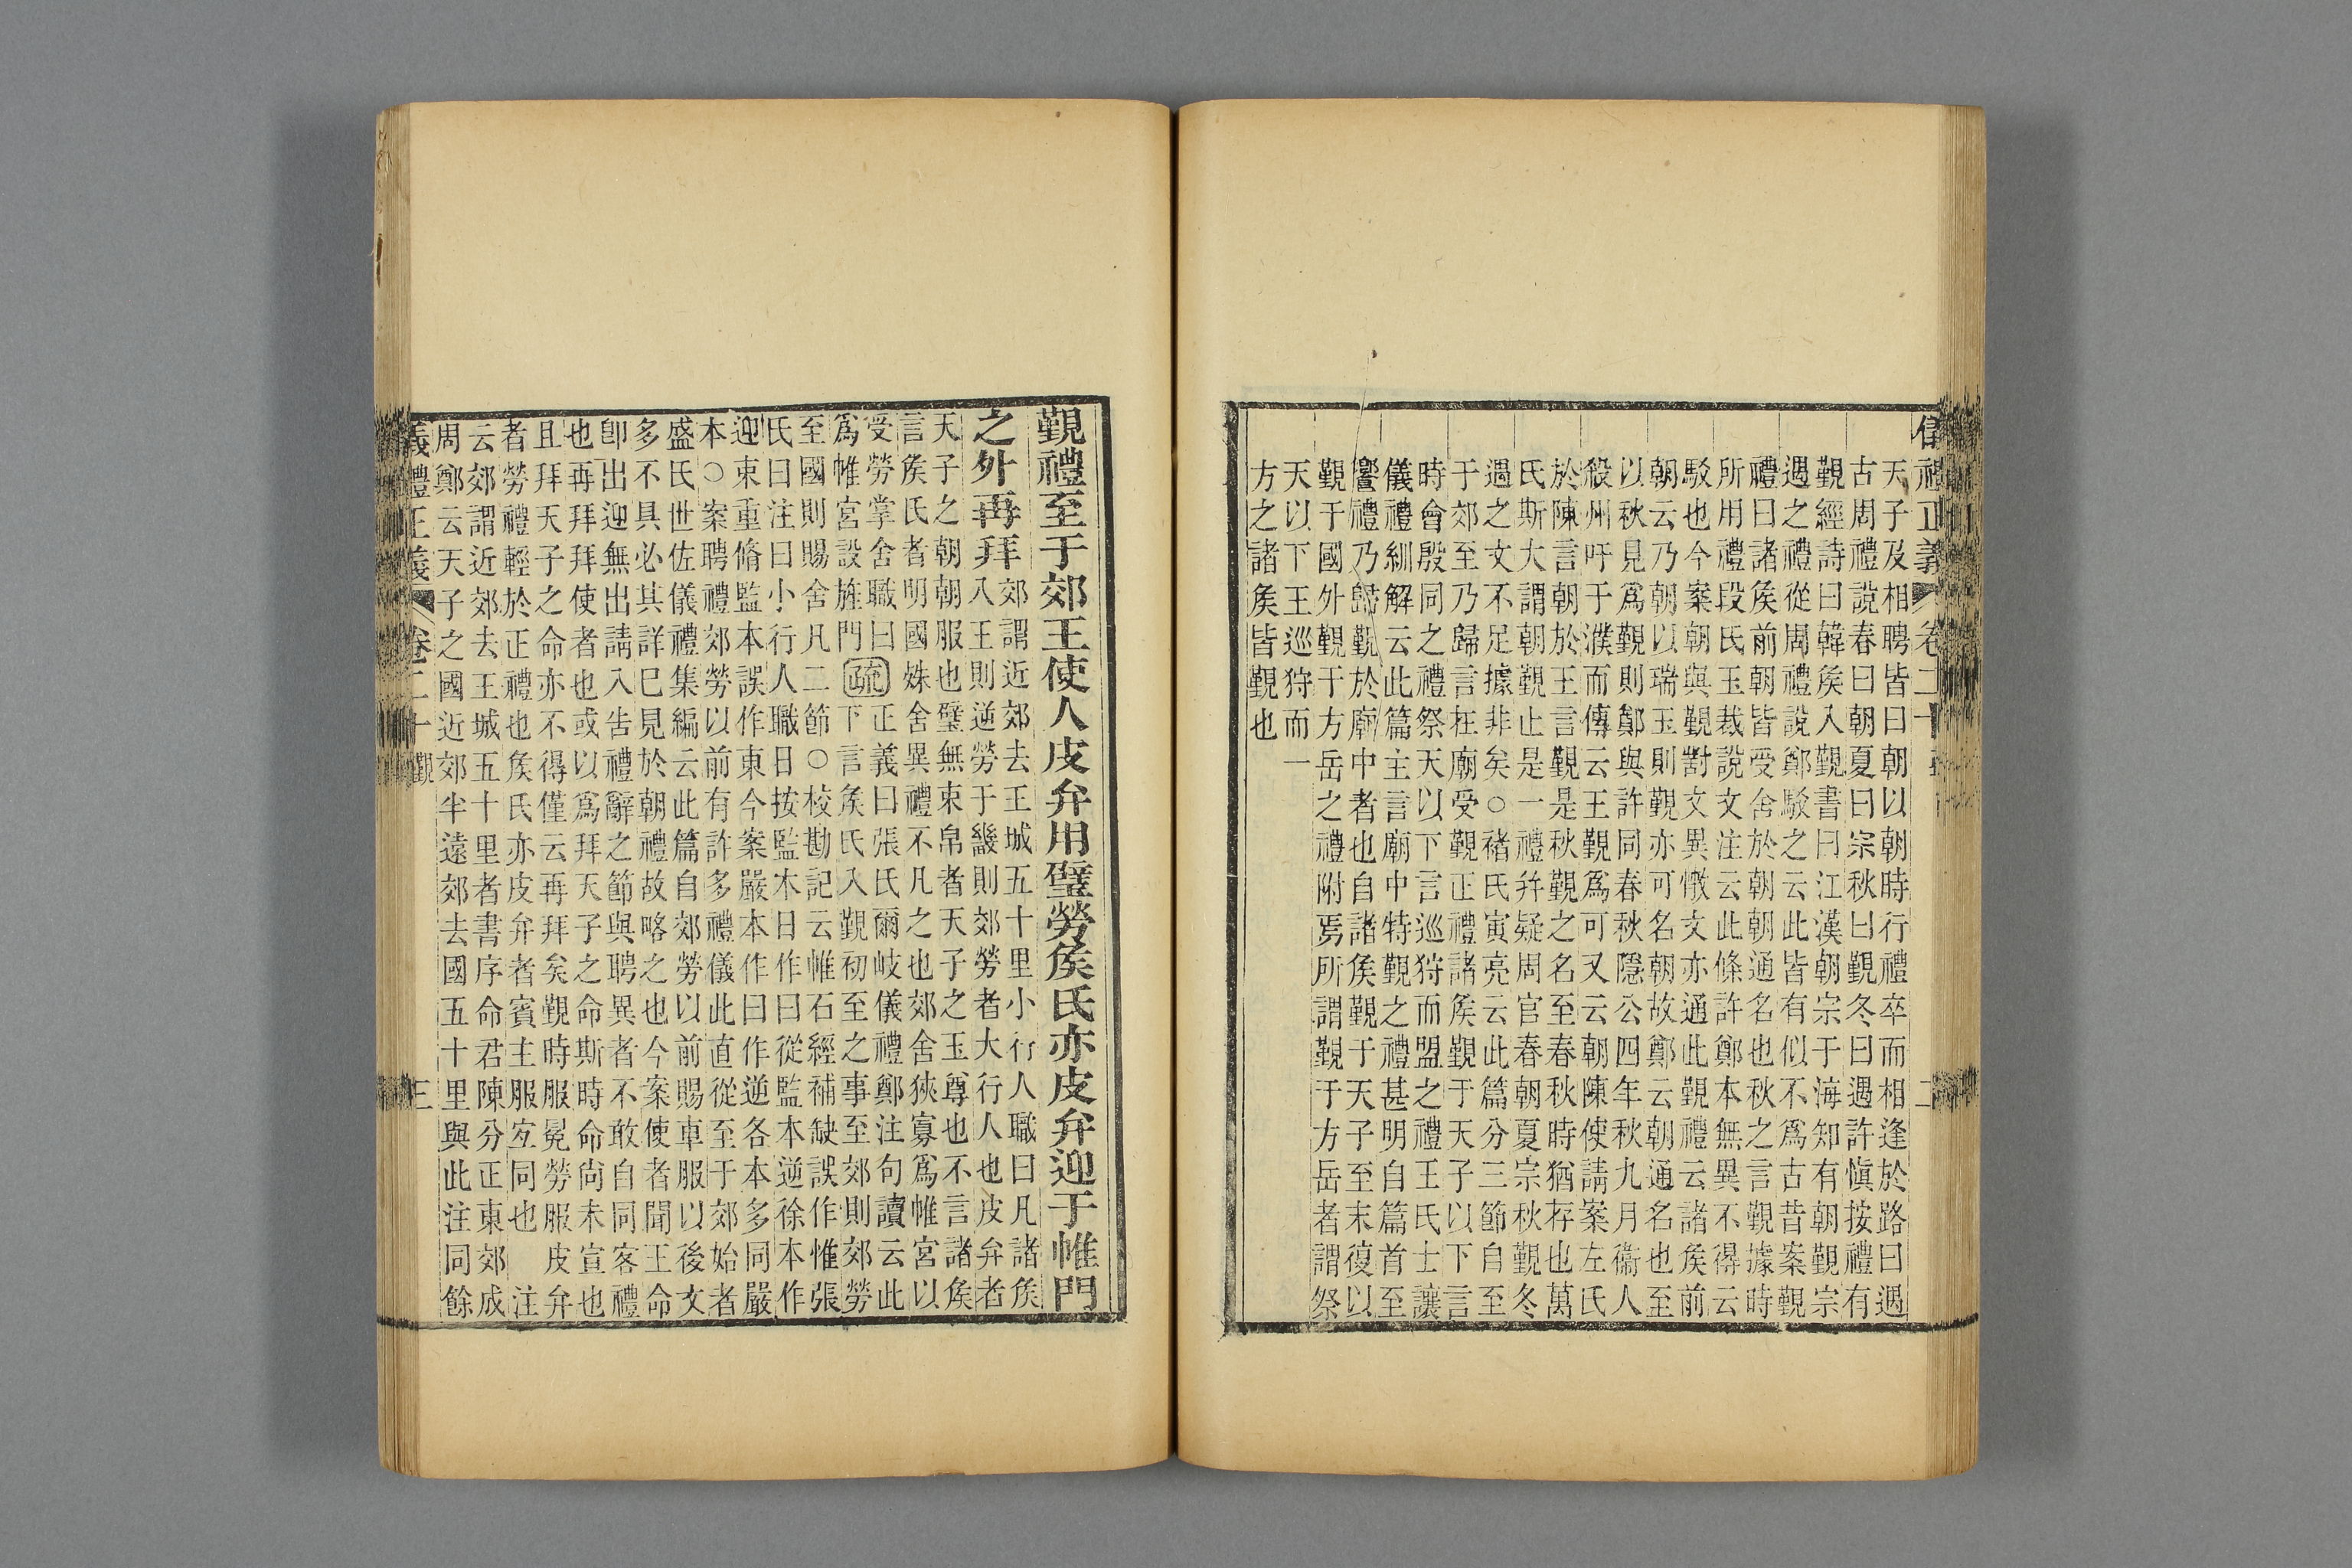 儀禮正義 卷二十 二
天子及相聘皆曰朝以朝時行禮卒而相逢於路曰遇
古周禮說春曰朝夏曰宗秋曰覲冬曰遇許愼按禮有
覲經詩曰韓矦入覲書曰江漢朝宗于海知有朝覲宗
遇之禮從周禮說鄭駁之云此皆有似不爲古昔案覲
禮曰諸矦前朝皆受舍於朝朝通名也秋之言覲據時
所用禮段氏玉裁說文注云此條許鄭本無異不得云
駁也今案朝與覲對文異㪚文亦通此覲禮云諸矦前
朝云乃朝以瑞玉則覲亦可名朝故鄭云朝通名也至
以秋見爲覲則鄭與許同春秋隱公四年秋九月衞人
殺州吁于濮而傳云王覲爲可又云朝陳使請案左氏
於陳言朝於王言覲是秋覲之名至春秋時猶存也萬
氏斯大謂朝覲止是一禮并疑周官春朝夏宗秋覲冬
遇之文不足據非矣○褚氏寅亮云此篇分三節自至
于郊至乃歸言在廟受覲正禮諸矦覲于天子以下言
時會殷同之禮祭天以下言巡狩而盟之禮王氏士讓
儀禮紃解云此篇主言廟中特覲之禮甚明自篇首至
饗禮乃歸覲於廟中者也自諸矦覲于天子至末復以
覲于國外覲于方岳之禮附焉所謂覲于方岳者謂祭
天以下王巡狩而一
方之諸矦皆覲也
覲禮至于郊王使人皮弁用璧勞矦氏亦皮弁迎于帷門
之外再拜
郊謂近郊去王城五十里小行人職曰凡諸矦
入王則逆勞于畿則郊勞者大行人也皮弁者
天子之朝朝服也璧無束帛者天子之玉尊也不言諸矦
言矦氏者明國姝舍異禮不凡之也郊舍狹寡爲帷宮以
受勞掌舍職曰
爲帷宮設旌門
疏
正義曰張氏爾岐儀禮鄭注句讀云此
下言矦氏入覲初至之事至郊則郊勞
至國則賜舍凡二節○校勘記云帷石經補缺誤作惟張
氏曰注曰小行人職日按監本日作曰從監本逆徐本作
迎束重脩監本誤作東今案嚴本作曰作逆各本多同嚴
本○案聘禮郊勞以前有許多禮儀此直從至于郊始者
盛氏世佐儀禮集編云此篇自郊勞以前賜車服以後文
多不具必其詳已見於朝禮故略之也今案使者聞王命
卽出迎無出請入告禮辭之節與聘異者不敢自同客禮
也再拜拜使者也或以爲拜天子之命斯時命尙未宣也
且拜天子之命亦不得僅云再拜矣覲時服冕勞服皮弁
者勞禮輕於正禮也矦氏亦皮弁者賓主服宐同也 注
云郊謂近郊去王城五十里者書序命君陳分正東郊成
周鄭云天子之國近郊半遠郊去國五十里與此注同餘
義禮正義 卷二十 覲 三